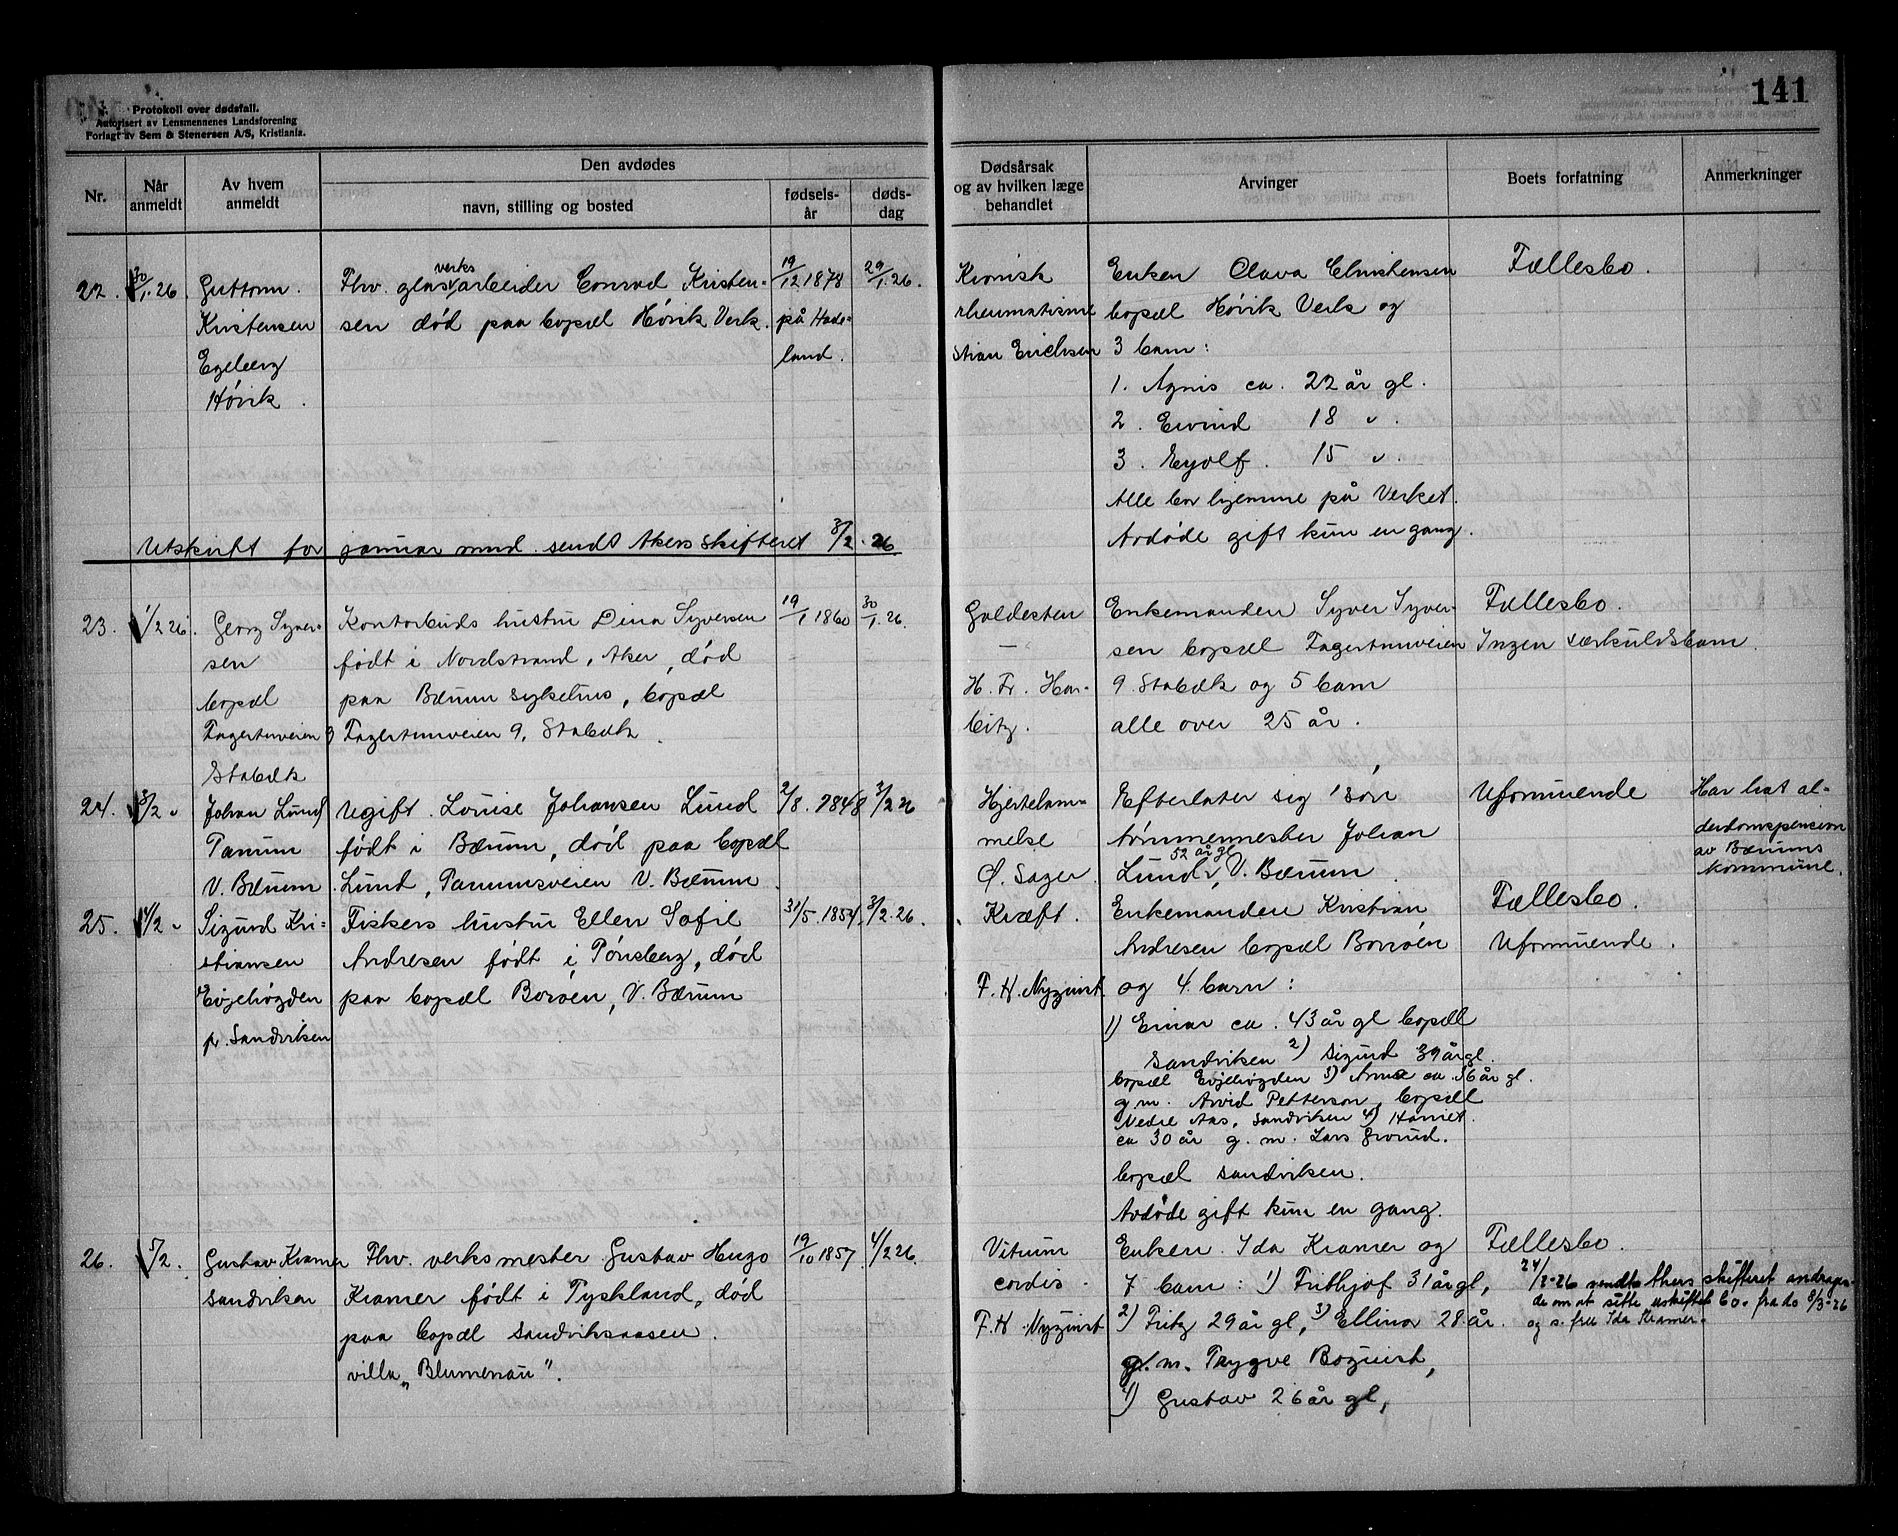 141
Protokoll over dødsfall.
Autorisert av Lensmennenes Landsforening
Forlagt av Sem & Stenersen A/S, Kristiania.
Nr.
Når anmeldt
Av hvem anmeldt
Den avdødes
navn, stilling og bosted
fødsels-
år
døds-
dag
Dødsårsak
og av hvilken læge
behandlet
Arvinger
Boets forfatning
Anmerkninger
22. 30/1.26. Guttorm
Kristensen
Egeberg
Høvik.
Fhv. glasverksarbeider Conrad Kristen-
sen død paa bopæl Høvik Verk.
19/12 1878
på Hade-
land.
29/1.26.
Kronisk
rheumatisme
Stian Erichsen
Enken Clara Christensen
bopæl Høvik Verk og
3 barn:
1. Agnis ca. 22 år gl.
2. Eivind 18 " .
3. Eyolf. 15 " .
Alle bor hjemme på Verket.
Avdøde gift kun en gang.
Fællesbo.
Utskrift for januar mnd. sendt Akers skifteret 3/2.26.
23. 1/2 26. Georg Syver-
sen
bopæl
Fagertunveien 9
Stabæk
Kontorbuds hustru Dina Syversen
født i Nordstrand, Aker, død
paa Bærum sykehus, bopæl
Fagertunveien 9, Stabæk.
19/1 1860
30/1.26.
Galdesten
H. Fr. Har-
bitz.
Enkemanden Syver Syver-
sen bopæl Fagertunveien
9. Stabæk og 5 barn
alle over 25 år.
Fællesbo.
Ingen særkuldsbarn.
24. 3/2 " Johan Lund
Tanum
V. Bærum
Ugift. Louise Johansen Lund
født i Bærum, død paa bopæl
Lund, Tanumsveien V. Bærum.
2/8. 1848
3/2 26
Hjertelam-
melse
O. Sager.
Efterlater sig 1 søn
tømmermester Johan
52 år gl
Lund, V. Bærum.
Uformuende
Har hat al-
derdomspension
av Bærums
kommune.
25. 4/2 " Sigurd Kri-
stiansen
Evjehøgden
pr. Sandviken
Fiskers hustru Ellen Sofie
Andresen født i Tønsberg, død
paa bopæl Borøen, V. Bærum
31/5. 1854.
3/2.26.
Kræft.
F. H. Nyquist
Enkemanden Kristian
Andresen bopæl Borrøen
og 4. barn:
1) Einar ca. 43 år gl bopæl
Sandviken 2) Sigurd 39 år gl.
bopæl Evjehøgden 3) Anna ca. 36 år gl.
g. m. Arvid Petterson, bopæl
Nedre Aas, Sandviken 4) Harriet.
ca 30 år g. m. Lars Grorud.
bopæl Sandviken.
Avdøde gift kun en gang.
Fællesbo.
Uformuende.
26. 5/2. Gustav Kramer
Sandviken
Fhv. verksmester Gustav Hugo
Kramer født i Tyskland, død
paa bopæl Sandviksaasen.
villa „Blumenau".
19/10 1857
4/2 26.
Vitium
cordis.
F. H. Nyquist
Enken. Ida Kramer og
7 barn: 1) Frithjof 31 år gl,
2) Fritz 29 år gl, 3) Ellinor 28 år.
g. m. Trygve Boquist,
4) Gustav 26 år gl,
Fællesbo.
24/2-26 sendte Akers skifteret andragen-
de om at sitte uskiftet bo. fra do 8/3-26
og s. fru Ida Kramer.